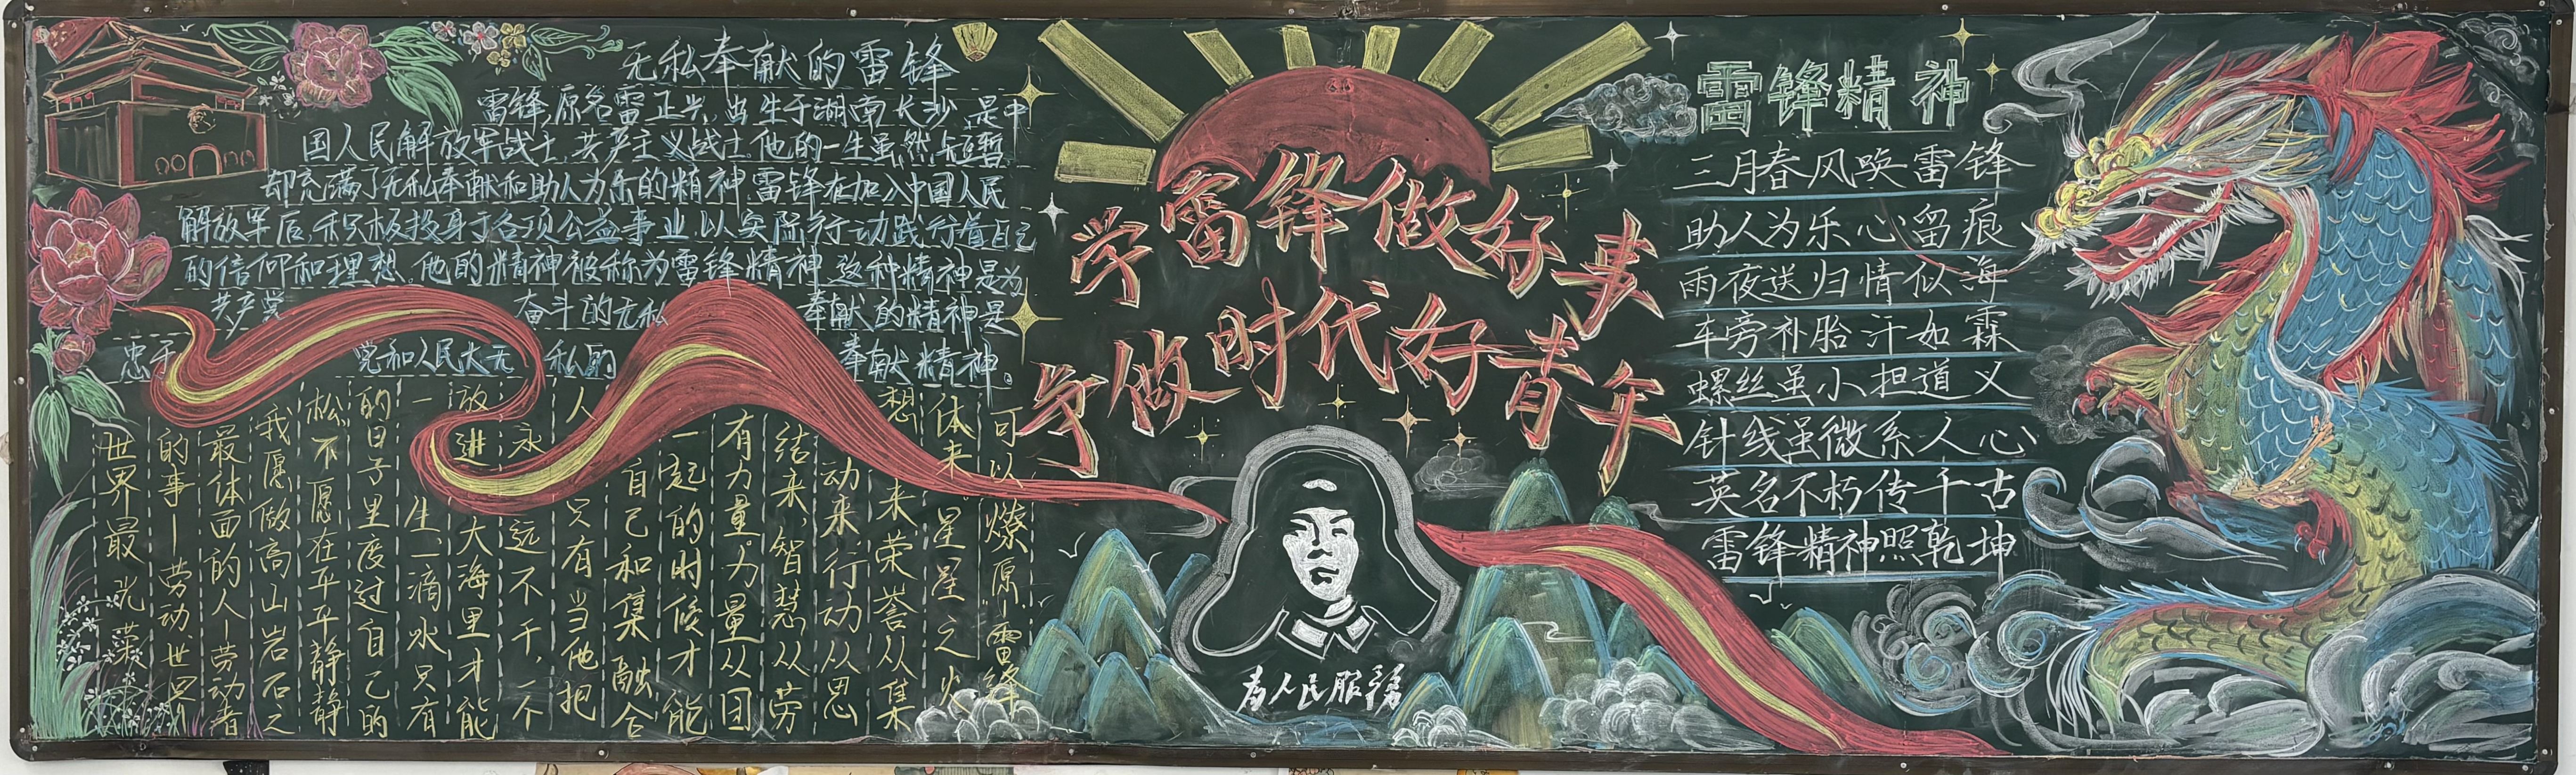 无私奉献的雷锋
雷锋,原名雷正兴,出生于湖南长沙,是中
国人民解放军战士,共产主义战士,他的一生虽然短暂
却充满了无私奉献和助人为乐的精神,雷锋在加入中国人民
解放军后,积极投身于各项公益事业,以实际行动践行着自己
的信仰和理想,他的精神被称为雷锋精神,这种精神是为
共产党 奋斗的无私 奉献的精神是
忠于 党和人民大无 私的 奉献精神。
世界最光荣
的事—劳动、世界
最体面的人—劳动者
我愿做高山岩石之
松不愿在平平静静
的日子里度过自己的
一生,一滴水只有
放进大海里才能
永远不干,一个
人只有当他把
自己和集融合
一起的时候才能
有力量,力量从团
结来,智慧从劳
动来,行动从思
想来荣誉从集
体来。星星之火
可以燎原—雷锋
学雷锋做好事
争做时代好青年
為人民服務
雷锋精神
三月春风唤雷锋
助人为乐心留痕
雨夜送归情似海
车旁补胎汗如霖
螺丝虽小担道义
针线虽微系人心
英名不朽传千古
雷锋精神照乾坤